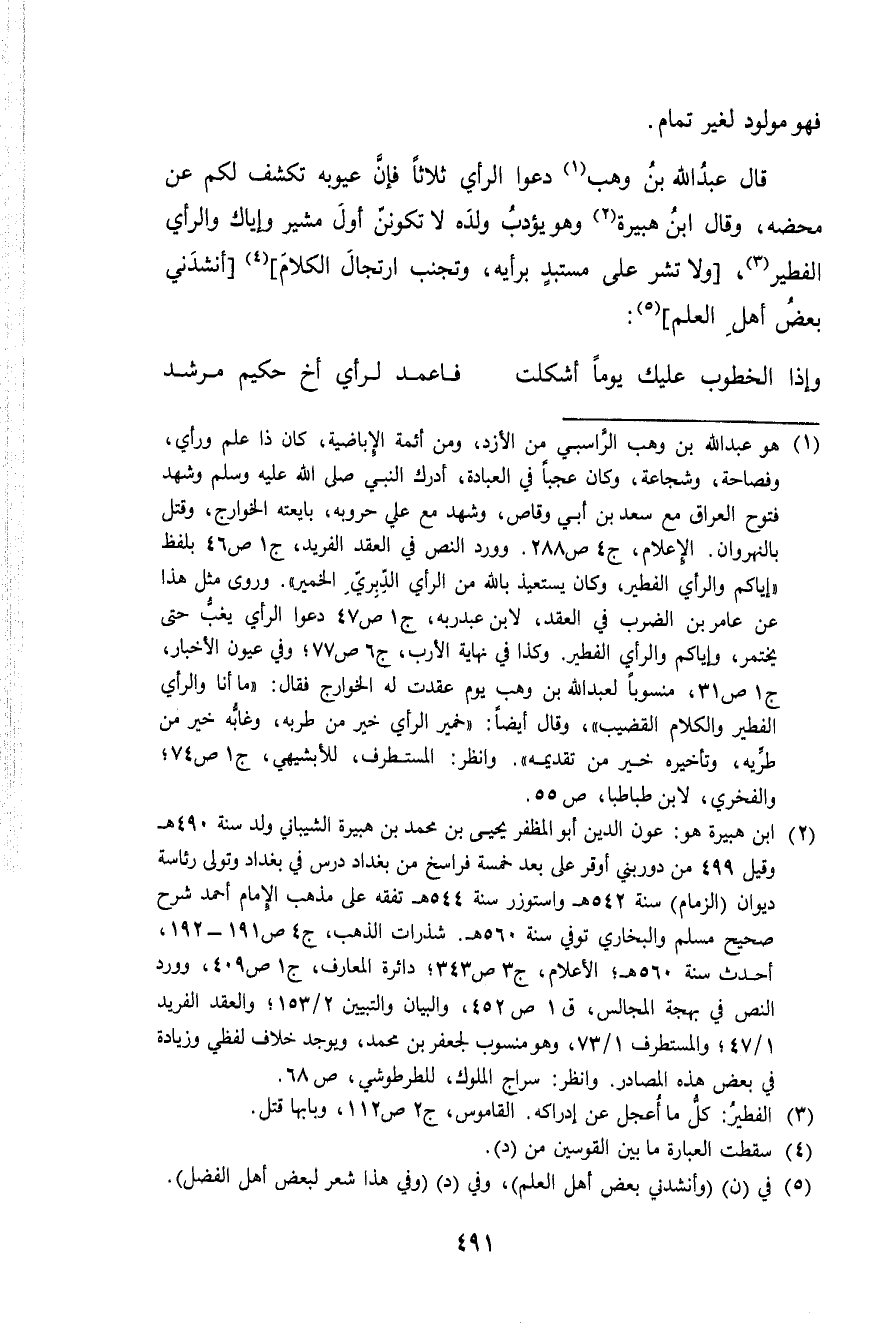 فهو مولود لغير تمام.
قال عبدُالله بنُ وهب(١) دعوا الرأي ثلاثاً فإنَّ عيوبه تكشف لكم عن
محضه، وقال ابنُ هبيرة(٢) وهو يؤدبُ ولدَه لا تكوننّ أولَ مشير وإياك والرأي
الفطير(٣)، [ولا تشر على مستبدٍ برأيه، وتجنب ارتجالَ الكلامَ](٤) [أنشدَني
بعضُ أهلِ العلم](٥):
وإذا الخطوب عليك يوماً أشكلت فاعمد لرأي أخ حكيم مرشد
(١) هو عبدالله بن وهب الرَّاسبي من الأزد، ومن أئمة الإباضية، كان ذا علم ورأي،
وفصاحة، وشجاعة، وكان عجباً في العبادة، أدرك النبي صلى الله عليه وسلم وشهد
فتوح العراق مع سعد بن أبي وقاص، وشهد مع علي حروبه، بايعته الخوارج، وقتل
بالنهروان. الإعلام، ج٤ ص٢٨٨. وورد النص في العقد الفريد، ج١ ص٤٦ بلفظ
«إياكم والرأي الفطير، وكان يستعيذ بالله من الرأي الدِّبِريّ الخمير». وروى مثل هذا
عن عامر بن الضرب في العقد، لابن عبدربه، ج١ ص٤٧ دعوا الرأي يغبُّ حتى
يختمر، وإياكم والرأي الفطير. وكذا في نهاية الأرب، ج٦ ص٧٧؛ وفي عيون الأخبار،
ج١ ص٣١، منسوباً لعبدالله بن وهب يوم عقدت له الخوارج فقال: «ما أنا والرأي
الفطير والكلام القضيب»، وقال أيضاً: «خمير الرأي خير من طربه، وغابُّه خير من
طرِّيه، وتأخيره خير من تقديمه». وانظر: المستطرف، للأبشيهي، ج١ ص٧٤؛
والفخري، لابن طباطبا، ص٥٥.
(٢) ابن هبيرة هو: عون الدين أبو المظفر يحيى بن محمد بن هبيرة الشيباني ولد سنة ٤٩٠هـ
وقيل ٤٩٩ من دوربني أوقر على بعد خمسة فراسخ من بغداد درس في بغداد وتولى رئاسة
ديوان (الزمام) سنة ٥٤٢هـ واستوزر سنة ٥٤٤هـ تفقه على مذهب الإمام أحمد شرح
صحيح مسلم والبخاري توفي سنة ٥٦٠هـ. شذرات الذهب، ج٤ ص١٩١ – ١٩٢،
أحدث سنة ٥٦٠هـ؛ الأعلام، ج٣ ص٣٤٣؛ دائرة المعارف، ج١ ص٤٠٩، وورد
النص في بهجة المجالس، ق١ ص٤٥٢، والبيان والتبيين ١٥٣/٢؛ والعقد الفريد
٤٧/١؛ والمستطرف ٧٣/١، وهو منسوب لجعفر بن محمد، ويوجد خلاف لفظي وزيادة
في بعض هذه المصادر. وانظر: سراج الملوك، للطرطوشي، ص٦٨.
(٣) الفطيرُ: كلُّ ما أُعجل عن إدراكه. القاموس، ج٢ ص١١٢، وبابها قتل.
(٤) سقطت العبارة ما بين القوسين من (د).
(٥) في (ن) (وأنشدني بعض أهل العلم)، وفي (د) (وفي هذا شعر لبعض أهل الفضل).
٤٩١